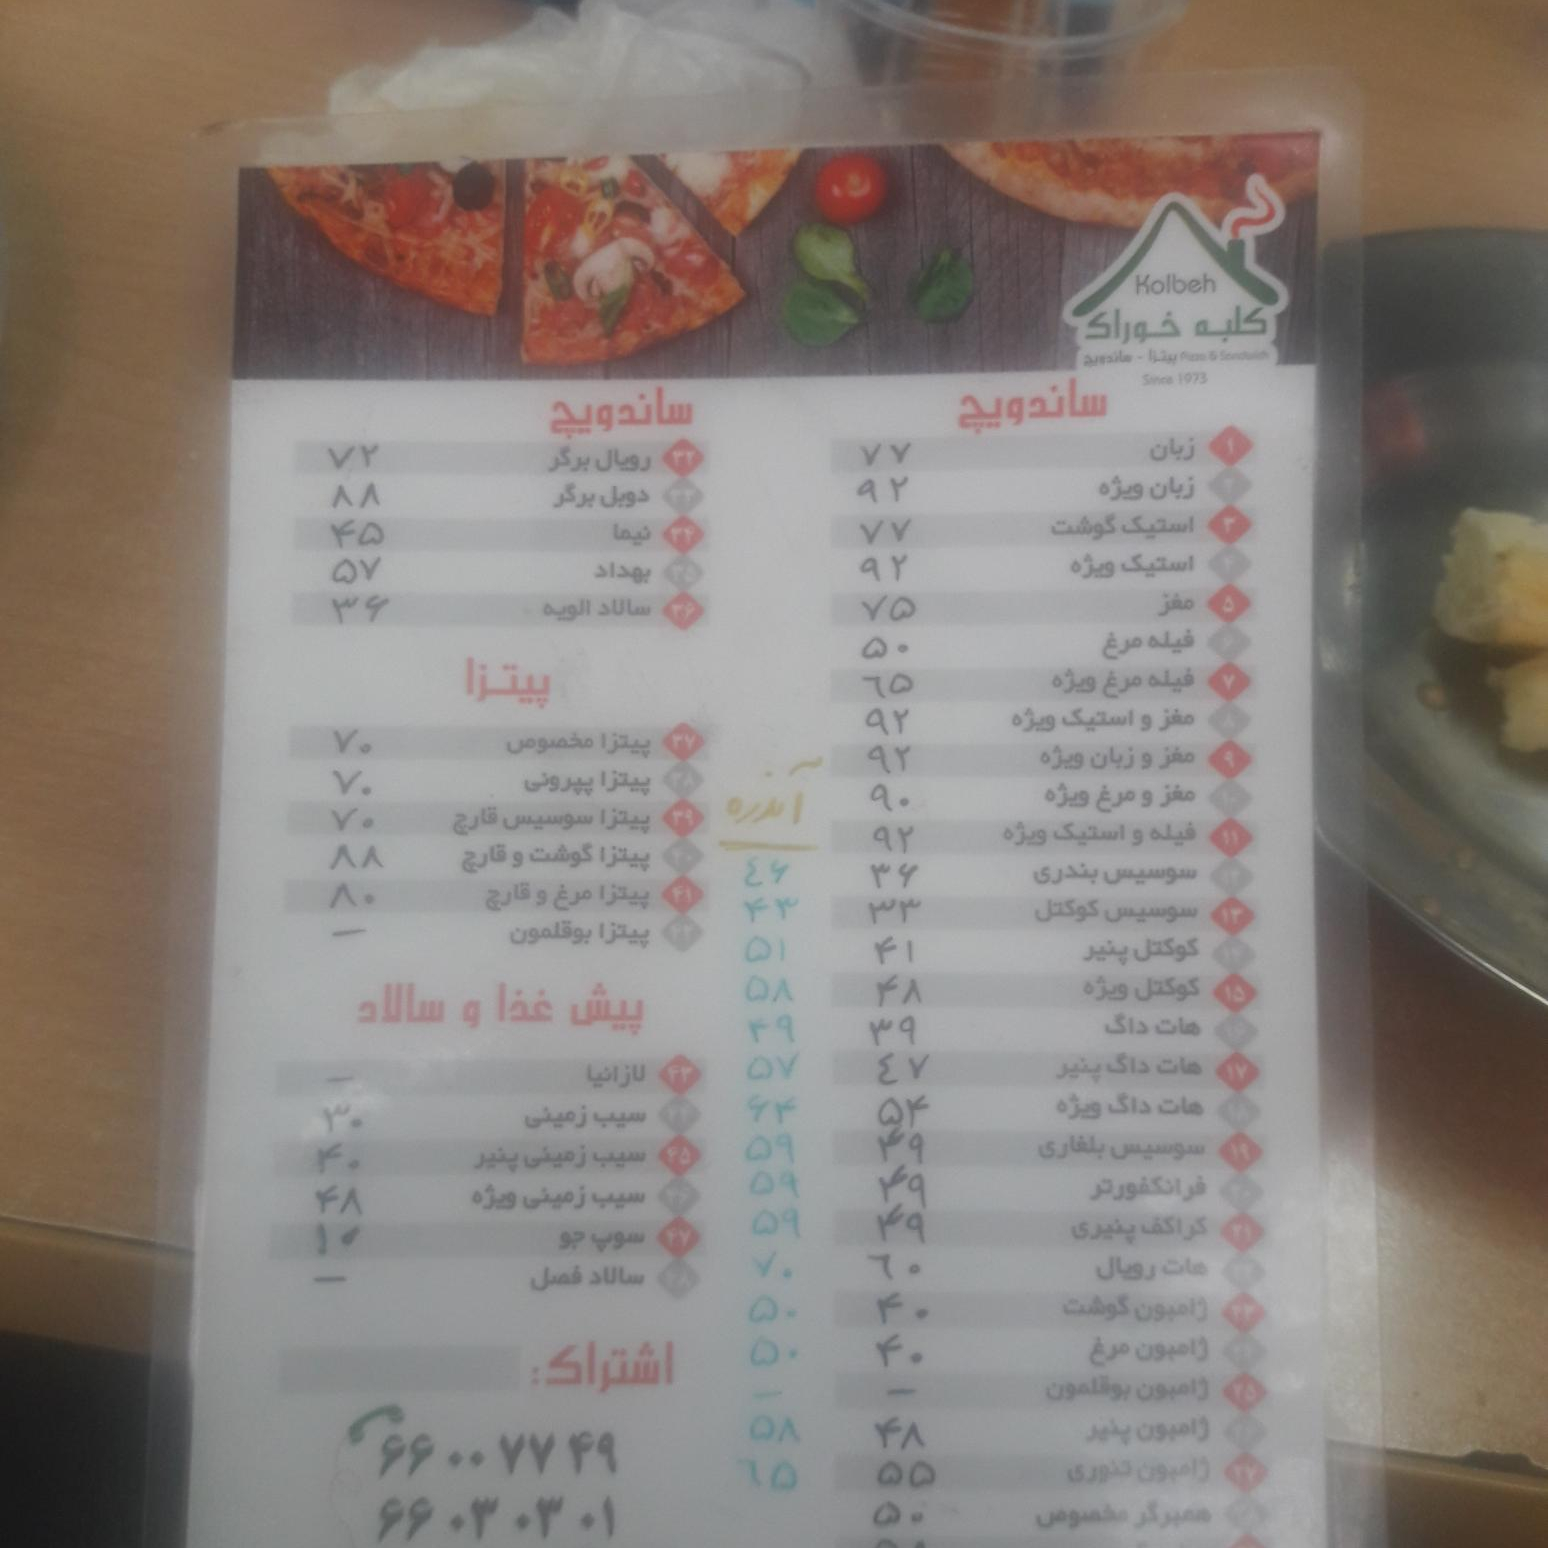 Kolbeh
کلبه خوراک
پیتزا - ساندویچ Pizza & Sandwich
Since 1973
ساندویچ
۱ زبان ۷۷
۲ زبان ویژه ۹۲
۳ استیک گوشت ۷۷
۴ استیک ویژه ۹۲
۵ مغز ۷۵
۶ فیله مرغ ۵۰
۷ فیله مرغ ویژه ۶۵
۸ مغز و استیک ویژه ۹۲
۹ مغز و زبان ویژه ۹۲
۱۰ مغز و مرغ ویژه ۹۰
۱۱ فیله و استیک ویژه ۹۲
آندره
۱۲ سوسیس بندری ۳۶ ۴۶
۱۳ سوسیس کوکتل ۳۳ ۴۳
۱۴ کوکتل پنیر ۴۱ ۵۱
۱۵ کوکتل ویژه ۴۸ ۵۸
۱۶ هات داگ ۳۹ ۴۹
۱۷ هات داگ پنیر ۴۷ ۵۷
۱۸ هات داگ ویژه ۵۴ ۶۴
۱۹ سوسیس بلغاری ۴۹ ۵۹
۲۰ فرانکفورتر ۴۹ ۵۹
۲۱ کراکف پنیری ۴۹ ۵۹
۲۲ هات رویال ۶۰ ۷۰
۲۳ ژامبون گوشت ۴۰ ۵۰
۲۴ ژامبون مرغ ۴۰ ۵۰
۲۵ ژامبون بوقلمون — —
۲۶ ژامبون پنیر ۴۸ ۵۸
۲۷ ژامبون تنوری ۵۵ ۶۵
۲۸ همبرگر مخصوص ۵۰
ساندویچ
۳۲ رویال برگر ۷۲
۳۳ دوبل برگر ۸۸
۳۴ نیما ۴۵
۳۵ بهداد ۵۷
۳۶ سالاد الویه ۳۶
پیتزا
۳۷ پیتزا مخصوص ۷۰
۳۸ پیتزا پپرونی ۷۰
۳۹ پیتزا سوسیس قارچ ۷۰
۴۰ پیتزا گوشت و قارچ ۸۸
۴۱ پیتزا مرغ و قارچ ۸۰
۴۲ پیتزا بوقلمون —
پیش غذا و سالاد
۴۳ لازانیا —
۴۴ سیب زمینی ۳۰
۴۵ سیب زمینی پنیر ۴۰
۴۶ سیب زمینی ویژه ۴۸
۴۷ سوپ جو ۱۰
۴۸ سالاد فصل —
اشتراک:
۶۶ ۰۰ ۷۷ ۴۹
۶۶ ۰۳ ۰۳ ۰۱